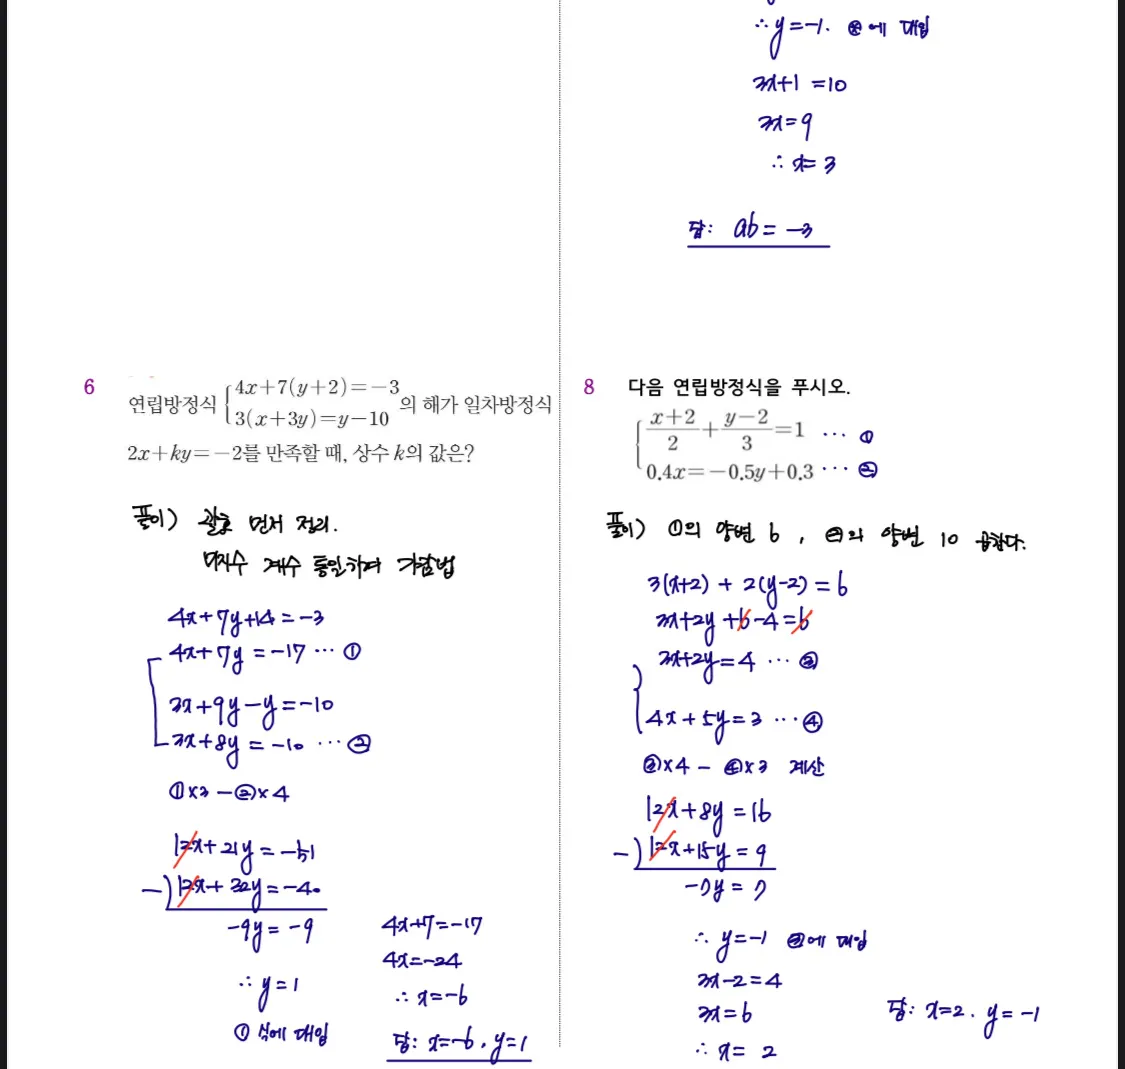 6
연립방정식 {4x+7(y+2)=-3
3(x+3y)=y-10 의 해가 일차방정식
2x+ky=-2를 만족할 때, 상수 k의 값은?
풀이) 괄호 먼저 정리.
미지수 계수 통일하여 가감법
4x+7y+14=-3
4x+7y=-17 ··· ①
3x+9y-y=-10
3x+8y=-10 ··· ②
①×3-②×4
12x+21y=-51
-)12x+32y=-40
-9y=-9
∴ y=1
① 식에 대입
4x+7=-17
4x=-24
∴ x=-6
답: x=-6, y=1
∴ y=-1. ⊛에 대입
3x+1=10
3x=9
∴ x=3
답: ab=-3
8 다음 연립방정식을 푸시오.
{(x+2)/2+(y-2)/3=1 ··· ①
0.4x=-0.5y+0.3 ··· ②
풀이) ①의 양변 6, ②의 양변 10 곱한다.
3(x+2)+2(y-2)=6
3x+2y+6-4=6
3x+2y=4 ··· ③
4x+5y=3 ··· ④
③×4-④×3 계산
12x+8y=16
-)12x+15y=9
-7y=7
∴ y=-1 ③에 대입
3x-2=4
3x=6
∴ x=2
답: x=2. y=-1